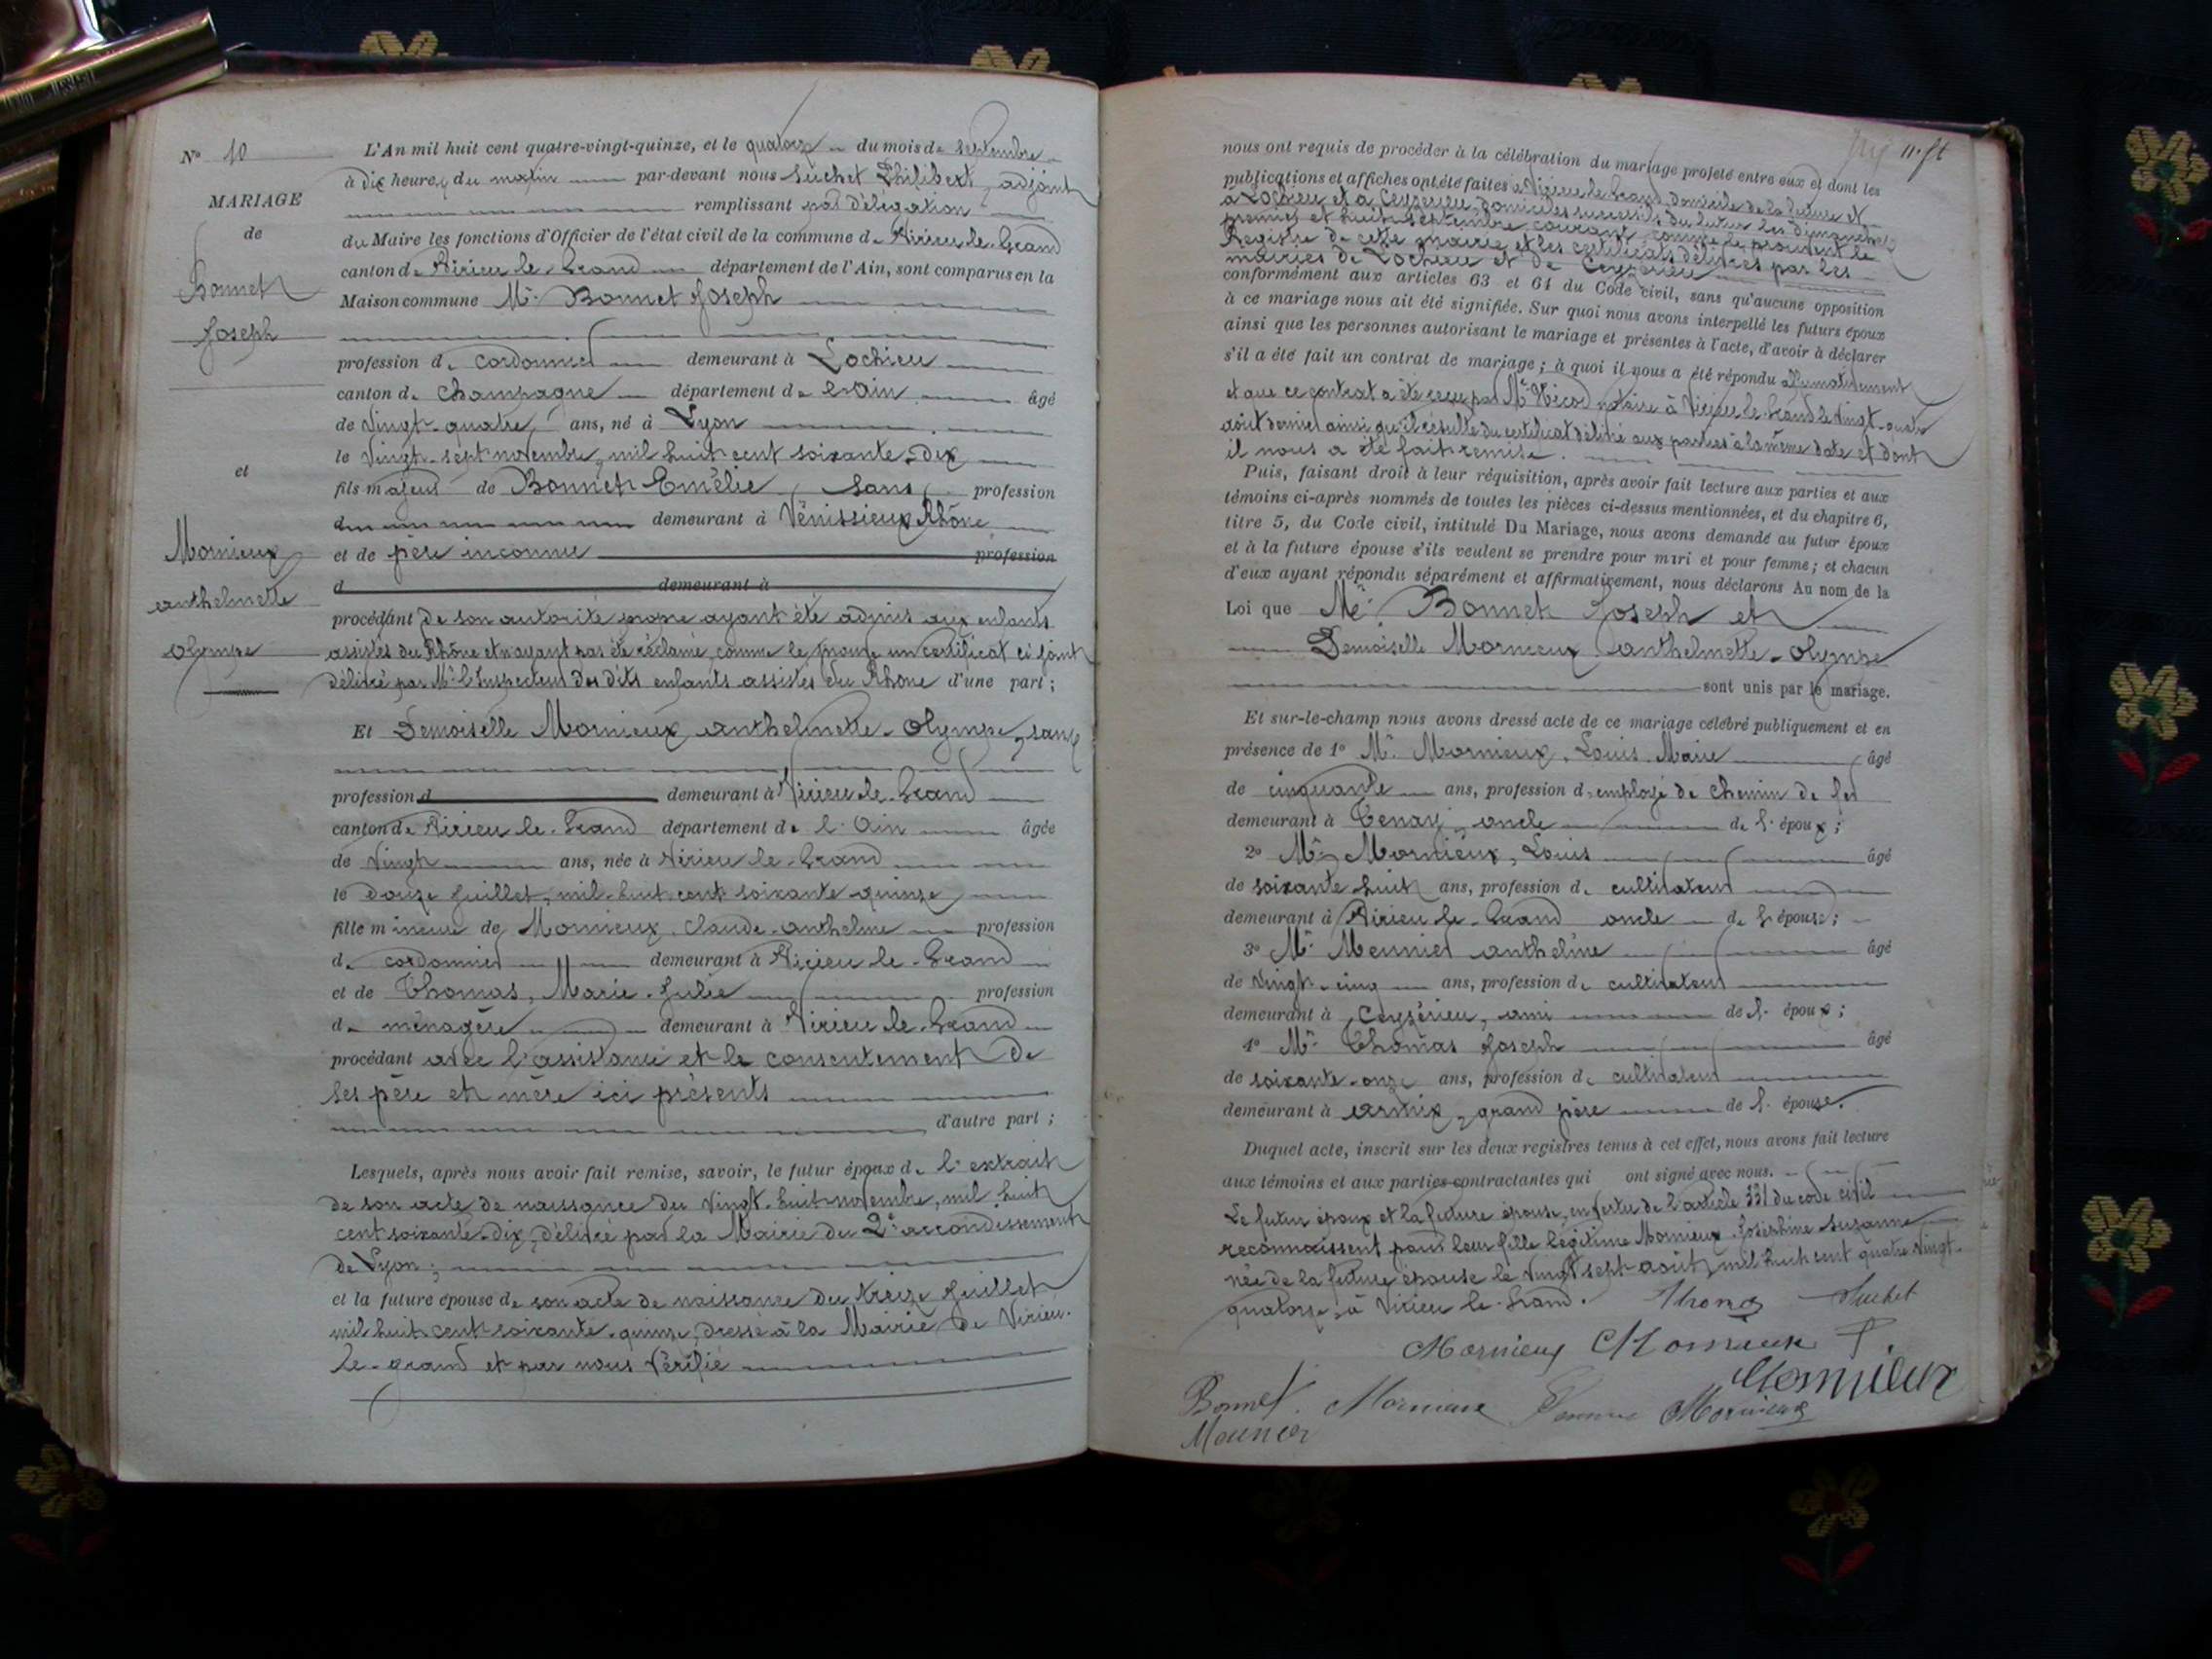 N° 10
MARIAGE
de
Bonnet
Joseph
et
Mornieux
anthelmette
olympe
L'An mil huit cent quatre-vingt-quinze, et le quatorze du mois de septembre
à dix heures du matin par-devant nous Suchet Philibert, adjoint
remplissant par délégation
du Maire les fonctions d'Officier de l'état civil de la commune de Virieu-le-Grand
canton de Virieu le Grand département de l'Ain, sont comparus en la
Maison commune Mr Bonnet Joseph
profession de cordonnier demeurant à Lochieu
canton de Champagne département de l'Ain âgé
de Vingt-quatre ans, né à Lyon
le Vingt-sept novembre, mil huit cent soixante-dix
fils majeur de Bonnet Emélie, sans profession
d demeurant à Vénissieux Rhône
et de père inconnu profession
d demeurant à
procédant de son autorité propre ayant été admis aux enfants
assistés du Rhône et n'ayant pas été réclamé, comme le prouve un certificat ci joint
délivré par Mr l'Inspecteur des dits enfants assistés du Rhône d'une part ;
Et Demoiselle Mornieux anthelmette-olympe, sans
profession d demeurant à Virieu-le-Grand
canton de Virieu-le-Grand département de l'Ain âgée
de Vingt ans, née à Virieu le-Grand
le douze Juillet, mil-huit cent soixante quinze
fille mineure de Mornieux Claude-anthelme profession
de cordonnier demeurant à Virieu le-Grand
et de Thomas, Marie-Julie profession
de ménagère demeurant à Virieu le-Grand
procédant avec l'assistance et le consentement de
ses père et mère ici présents
d'autre part ;
Lesquels, après nous avoir fait remise, savoir, le futur époux de l'extrait
de son acte de naissance du Vingt-huit novembre, mil huit
cent soixante-dix, délivré par la Mairie du 2e arrondissement
de Lyon ;
et la future épouse de son acte de naissance du treize Juillet
mil huit-cent-soixante-quinze, dressé à la Mairie de Virieu-
le-grand et par nous Vérifié
11. ft
nous ont requis de procéder à la célébration du mariage projeté entre eux et dont les
publications et affiches ont été faites à Virieu le Grand domicile de la future et
à Lochieu et à Ceyzérieu, domiciles successifs du futur les dimanches
premier et huit septembre courant, comme le prouvent le
Registre de cette mairie et les certificats délivrés par les
mairies de Lochieu et de Ceyzérieu
conformément aux articles 63 et 64 du Code civil, sans qu'aucune opposition
à ce mariage nous ait été signifiée. Sur quoi nous avons interpellé les futurs époux
ainsi que les personnes autorisant le mariage et présentes à l'acte, d'avoir à déclarer
s'il a été fait un contrat de mariage ; à quoi il nous a été répondu affirmativement
et que ce contrat a été reçu par Me notaire à Virieu le Grand le vingt-quatre
août dernier ainsi qu'il résulte du certificat délivré aux parties à la même date et dont
il nous a été fait remise.
Puis, faisant droit à leur réquisition, après avoir fait lecture aux parties et aux
témoins ci-après nommés de toutes les pièces ci-dessus mentionnées, et du chapitre 6,
titre 5, du Code civil, intitulé Du Mariage, nous avons demandé au futur époux
et à la future épouse s'ils veulent se prendre pour mari et pour femme ; et chacun
d'eux ayant répondu séparément et affirmativement, nous déclarons Au nom de la
Loi que Mr Bonnet Joseph et
Demoiselle Mornieux anthelmette-olympe
sont unis par le mariage.
Et sur-le-champ nous avons dressé acte de ce mariage célébré publiquement et en
présence de 1° Mr Mornieux, Louis Marie âgé
de cinquante ans, profession d'employé de chemin de fer
demeurant à Tenay, oncle de l'époux ;
2° Mr Mornieux, Louis âgé
de soixante huit ans, profession de cultivateur
demeurant à Virieu le-Grand oncle de l'épouse ;
3° Mr Meunier anthelme âgé
de Vingt-cinq ans, profession de cultivateur
demeurant à Ceyzérieu, ami de l'époux ;
4° Mr Thomas Joseph âgé
de soixante-onze ans, profession de cultivateur
demeurant à armix, grand père de l'épouse.
Duquel acte, inscrit sur les deux registres tenus à cet effet, nous avons fait lecture
aux témoins et aux parties contractantes qui ont signé avec nous.
Le futur époux et la future épouse, en vertu de l'article 331 du code civil
reconnaissent pour leur fille légitime Mornieux Joséphine Suzanne
née de la future épouse le vingt sept août, mil huit cent quatre vingt-
quatorze, à Virieu le-Grand. Thomas Suchet
Mornieux Mornieux
Mornieux
Bonnet Mornieux Mornieux
Meunier